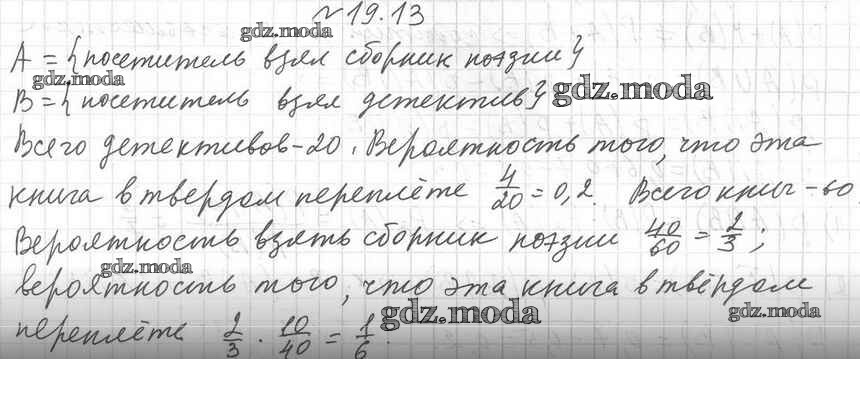 №19.13
gdz.moda
A = {посетитель взял сборник поэзии}
gdz.moda
B = {посетитель взял детектив}
gdz.moda
Всего детективов-20. Вероятность того, что эта
книга в твердом переплёте 4/20 = 0,2. Всего книг - 60.
Вероятность взять сборник поэзии 40/60 = 2/3;
gdz.moda
вероятность того, что эта книга в твёрдом
gdz.moda
gdz.moda
переплёте 2/3 · 10/40 = 1/6.